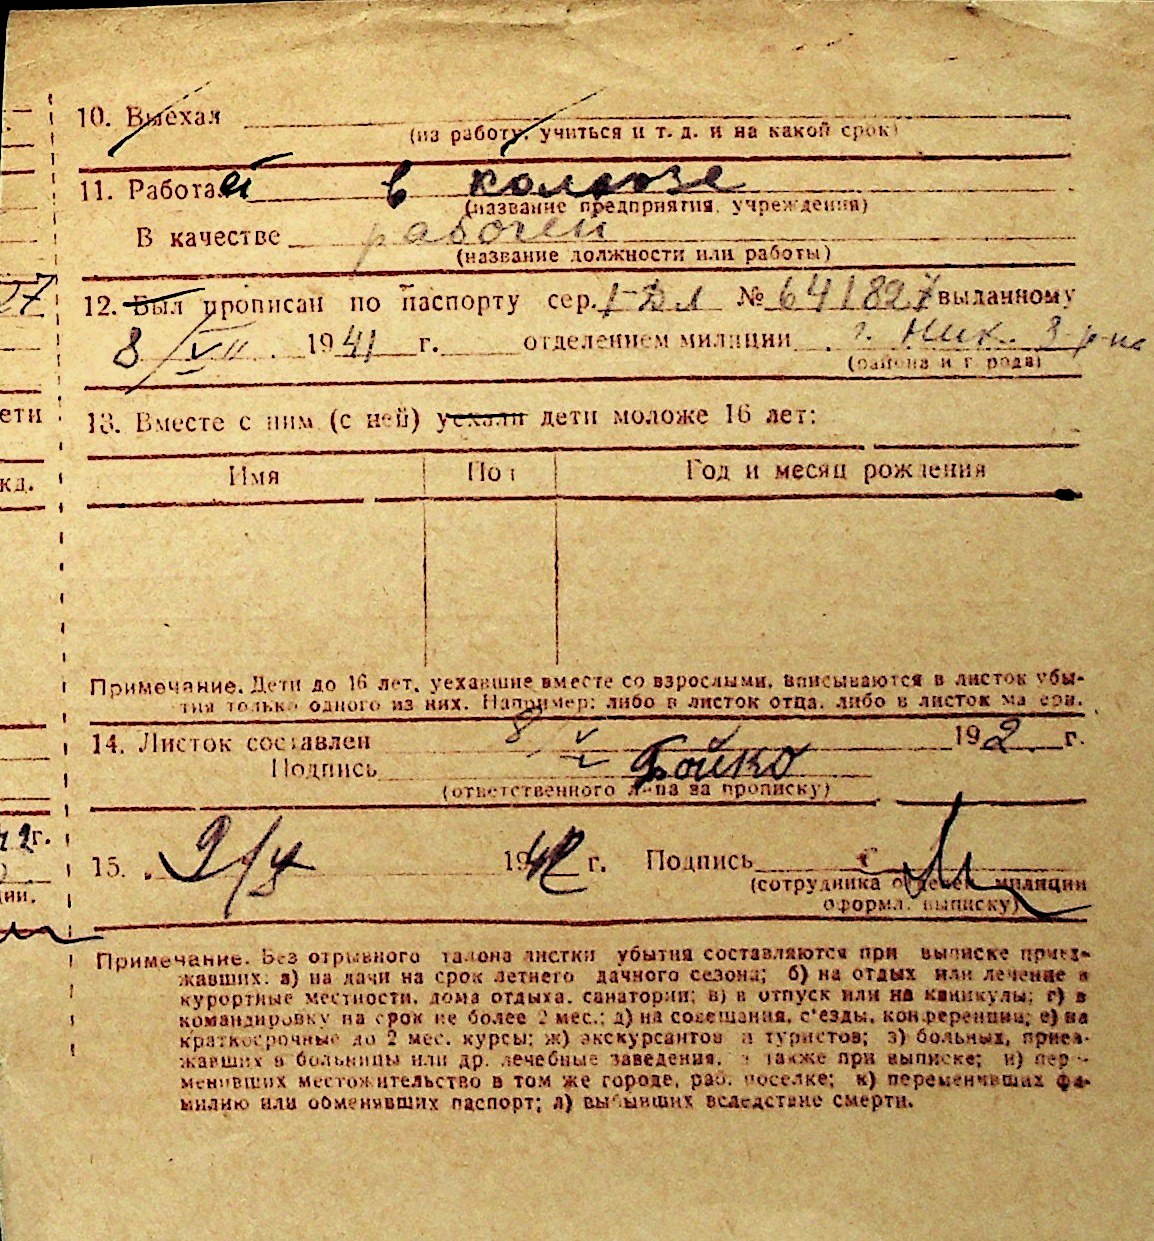 10. Выехал
(на работу, учиться и т. д. и на какой срок)
11. Работает в колхозе
(название предприятия, учреждения)
В качестве рабочей
(название должности или работы)
12. Был прописан по паспорту сер. № 641827 выданному
8/VII 1941 г. отделением милиции г. Ник. 3 р-на
(района и города)
13. Вместе с ним (с ней) уехали дети моложе 16 лет:
Имя Пол Год и месяц рождения
Примечание. Дети до 16 лет, уехавшие вместе со взрослыми, вписываются в листок убы-
тия только одного из них. Например: либо в листок отца, либо в листок матери.
14. Листок составлен 8/V 192 г.
Подпись Бойко
(ответственного лица за прописку)
15. 9/V 1942 г. Подпись
(сотрудника отделен. милиции
оформл. выписку)
Примечание. Без отрывного талона листки убытия составляются при выписке приез-
жавших: а) на дачи на срок летнего дачного сезона; б) на отдых или лечение в
курортные местности, дома отдыха, санатории; в) в отпуск или на каникулы; г) в
командировку на срок не более 2 мес.; д) на совещания, с'езды, конференции; е) на
краткосрочные до 2 мес. курсы; ж) экскурсантов и туристов; з) больных, приез-
жавших в больницы или др. лечебные заведения, а также при выписке; и) пере-
менивших местожительство в том же городе, раб. поселке; к) переменивших фа-
милию или обменявших паспорт; л) выбывших вследствие смерти.